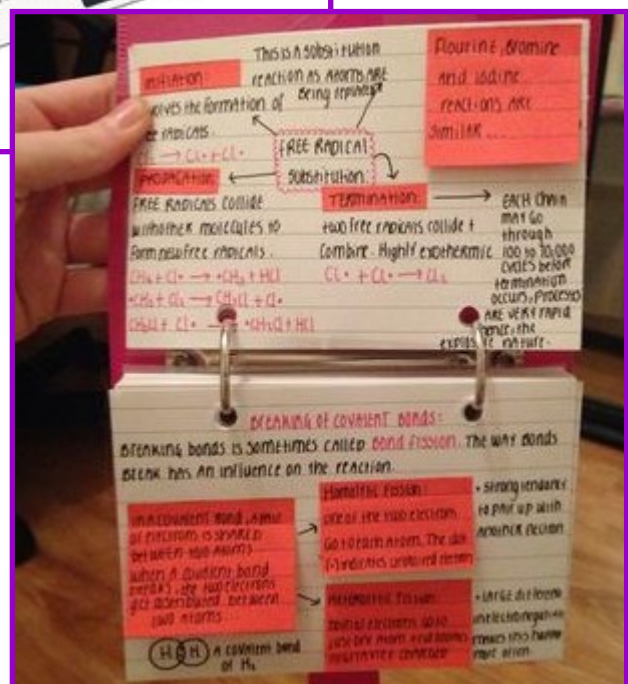 This is a substitution
reaction as atoms are
being replaced
Initiation:
volves the formation of
ee radicals.
Cl₂ → Cl• + Cl•
FREE RADICAL
Substitution:
Flourine, Bromine
and iodine
reactions are
similar ....
Propagation:
Free radicals collide
with other molecules to
form new free radicals.
CH₄ + Cl• → •CH₃ + HCl
•CH₃ + Cl₂ → CH₃Cl + Cl•
CH₃Cl + Cl• → •CH₂Cl + HCl
Termination:
two free radicals collide +
combine. Highly exothermic
Cl• + Cl• → Cl₂
Each chain
may go
through
100 to 10,000
cycles before
termination
occurs, processes
are very rapid
hence, the
explosive nature.
Breaking of covalent bonds:
Breaking bonds is sometimes called Bond fission. The way bonds
break has an influence on the reaction.
In a covalent bond, a pair
of electrons is shared
between two atoms
When a covalent bond
breaks, the two electrons
get distributed between
two atoms...
H H A covalent bond
of H₂
Homolytic Fission:
one of the two electrons
go to each atom. The dot
(•) indicates unpaired electron
• strong tendancy
to pair up with
another electron
Heterolytic Fission:
both electrons go to
just one atom
negatively charged
• large difference
in electronegativity
makes this happen
more often.